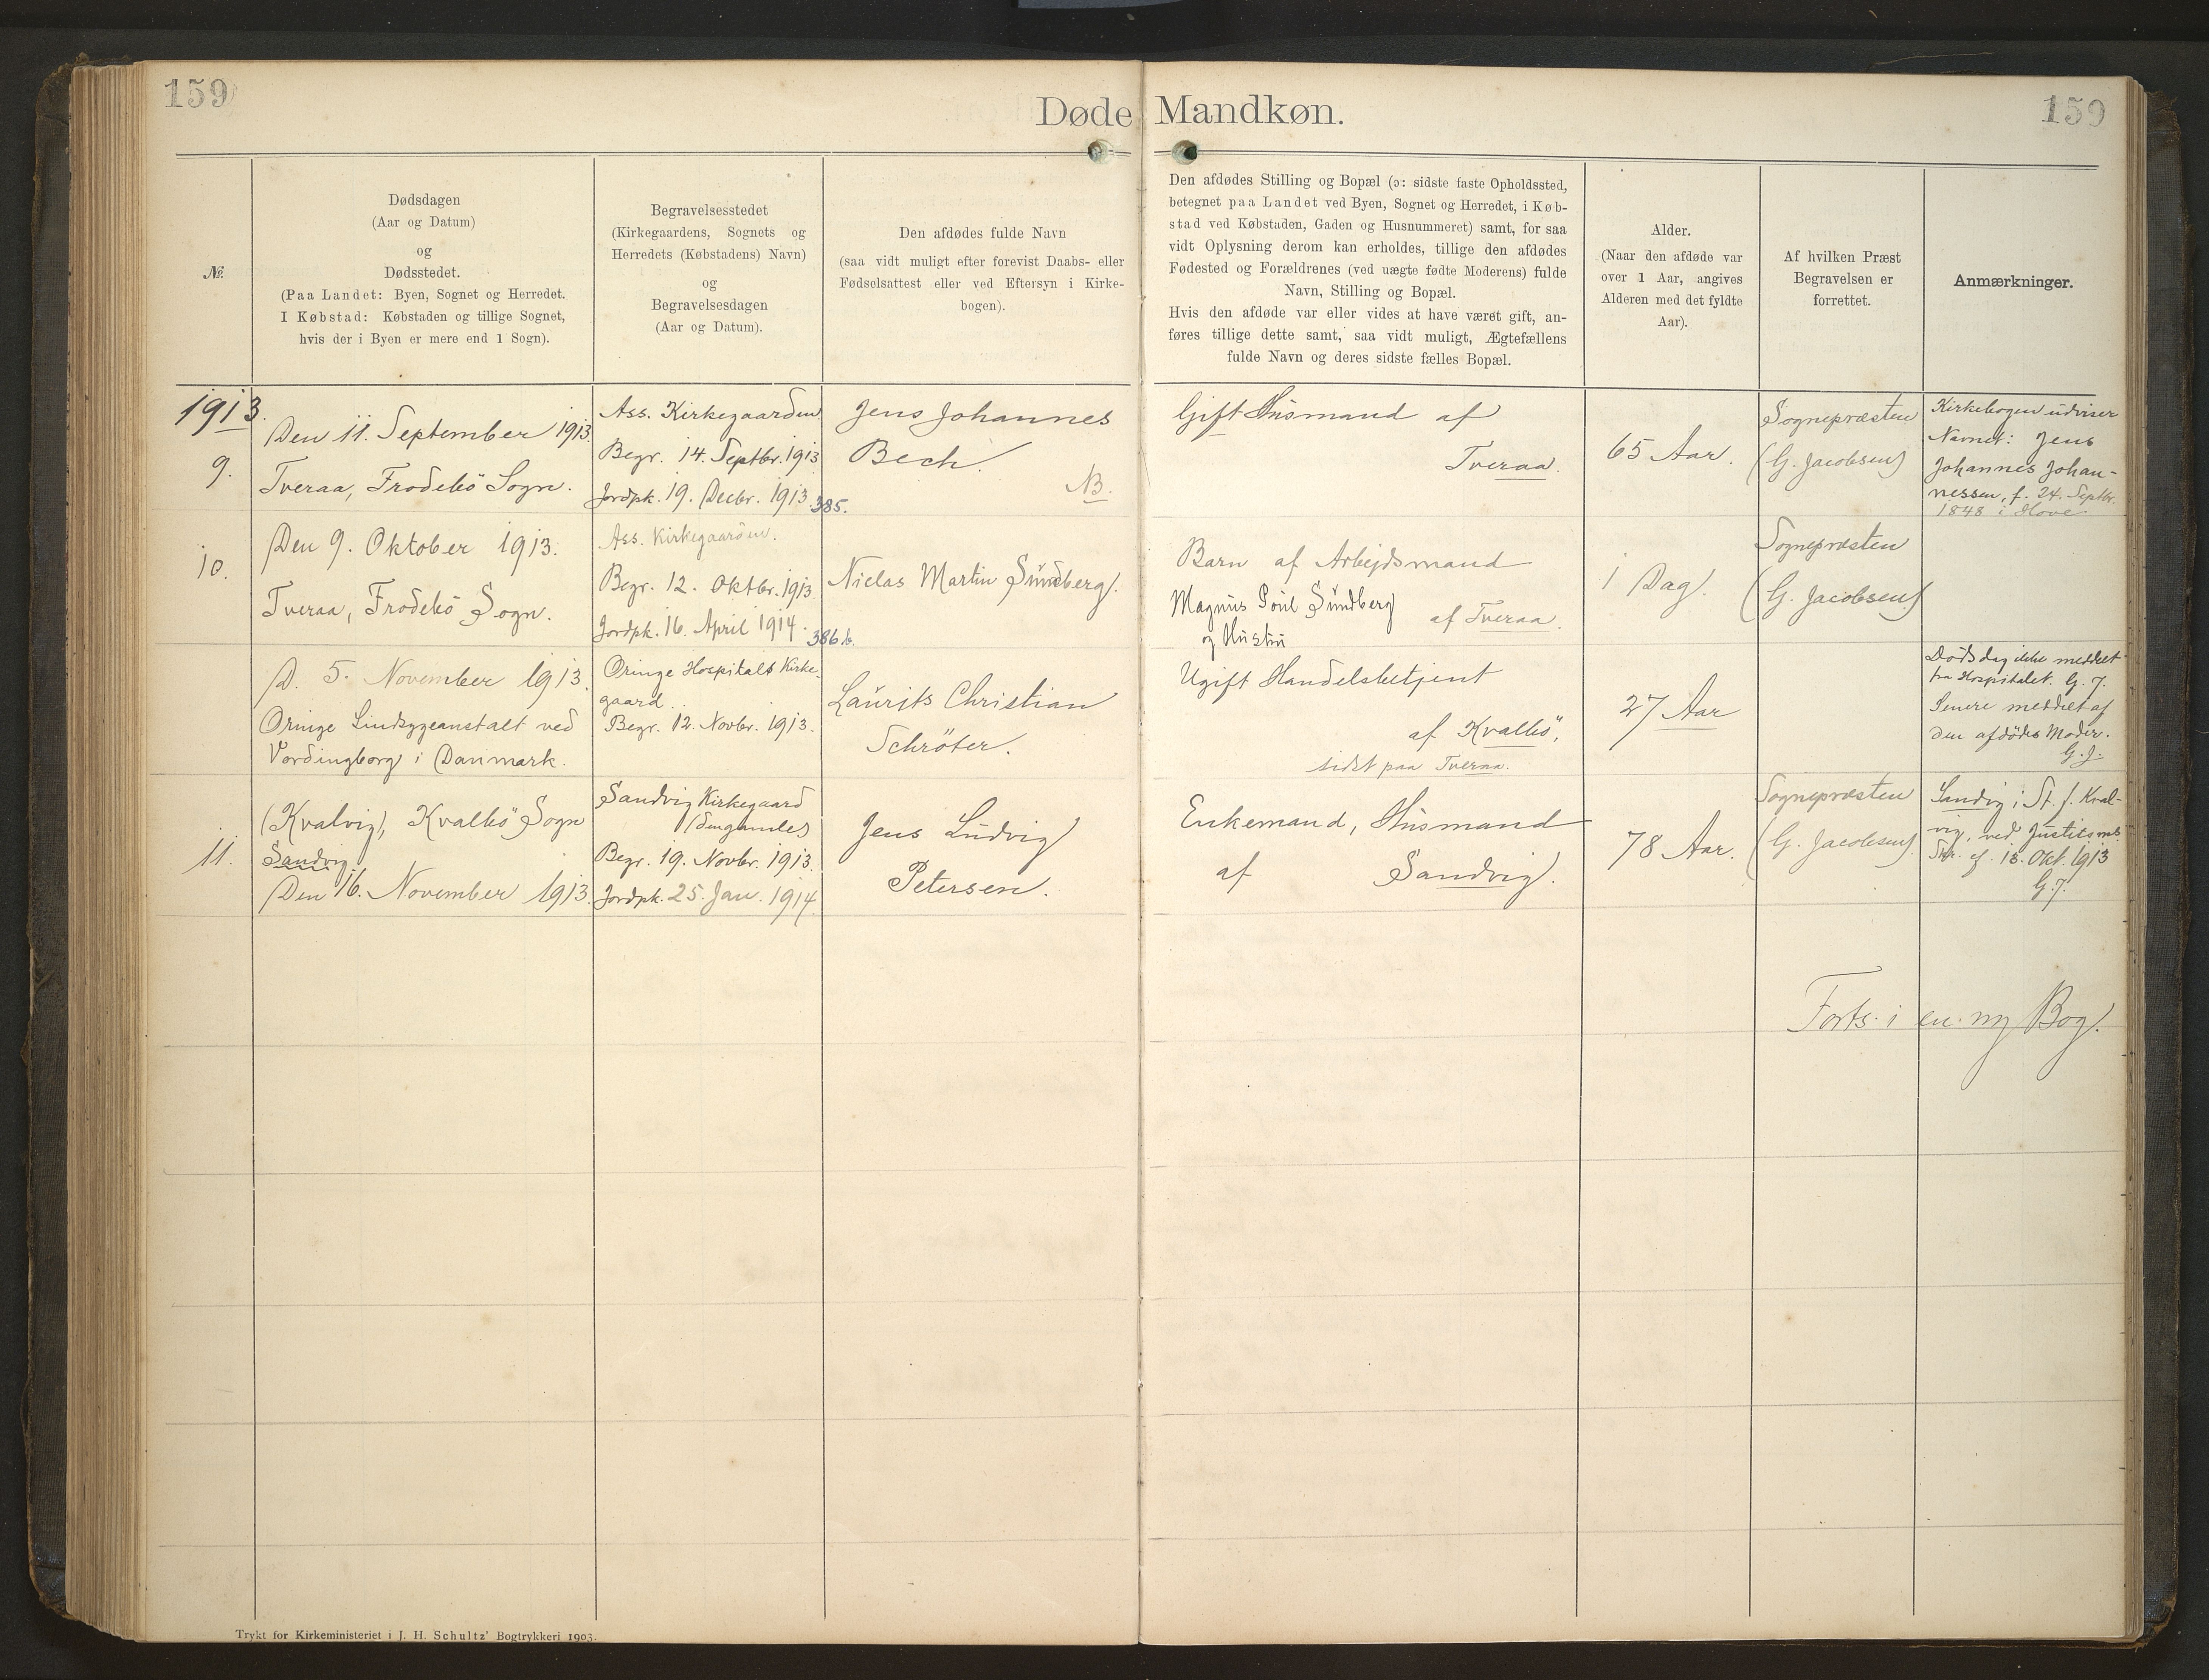 159
159
Døde Mandkøn.
№
Dødsdagen
(Aar og Datum)
og
Dødsstedet.
(Paa Landet: Byen, Sognet og Herredet.
I Købstad: Købstaden og tillige Sognet,
hvis der i Byen er mere end 1 Sogn).
Begravelsesstedet
(Kirkegaardens, Sognets og
Herredets (Købstadens) Navn)
og
Begravelsesdagen
(Aar og Datum).
Den afdødes fulde Navn
(saa vidt muligt efter forevist Daabs- eller
Fødselsattest eller ved Eftersyn i Kirke-
bogen).
Den afdødes Stilling og Bopæl (ɔ: sidste faste Opholdssted,
betegnet paa Landet ved Byen, Sognet og Herredet, i Køb-
stad ved Købstaden, Gaden og Husnummeret) samt, for saa
vidt Oplysning derom kan erholdes, tillige den afdødes
Fødested og Forældrenes (ved uægte fødte Moderens) fulde
Navn, Stilling og Bopæl.
Hvis den afdøde var eller vides at have været gift, an-
føres tillige dette samt, saa vidt muligt, Ægtefællens
fulde Navn og deres sidste fælles Bopæl.
Alder.
(Naar den afdøde var
over 1 Aar, angives
Alderen med det fyldte
Aar).
Af hvilken Præst
Begravelsen er
forrettet.
Anmærkninger.
1913.
9.
Den 11. September 1913.
Tveraa, Frodebö Sogn.
Ass. Kirkegaarden
Begr. 14. Septbr. 1913
Jordpk. 19. Decbr. 1913.
385.
Jens Johannes
Bech.
NB.
Gift Husmand af
Tveraa.
65 Aar.
Sognepræsten
(G. Jacobsen)
Kirkebogen udviser
Navnet: Jens
Johannes Johan-
nessen, f. 24. Septbr.
1848 i Hove.
10.
Den 9. Oktober 1913.
Tveraa, Frodebö Sogn.
Ass. Kirkegaarden.
Begr. 12. Oktbr. 1913.
Jordpk. 16. April 1914.
386 b.
Niclas Martin Sundberg.
Barn af Arbejdsmand
Magnus Poul Sundberg
og Hustru
af Tveraa.
1 Dag.
Sognepræsten
(G. Jacobsen)
D. 5. November 1913.
Oringe Sindsygeanstalt ved
Vordingborg i Danmark.
Oringe Hospitals Kirke-
gaard.
Begr. 12. Novbr. 1913.
Laurits Christian
Schröter.
Ugift Handelsbetjent
af Kvalbö,
sidst paa Tveraa.
27 Aar
Dødsdag ikke meddelt
fra Hospitalet. G. J.
Senere meddelt af
den afdødes Moder.
G. J.
11.
(Kvalvig), Kvalbö Sogn
Sandvig
Den 16. November 1913.
Sandvig Kirkegaard
(den gamle)
Begr. 19. Novbr. 1913.
Jordpk. 25. Jan. 1914.
Jens Ludvig
Petersen.
Enkemand, Husmand
af Sandvig.
78 Aar.
Sognepræsten
(G. Jacobsen).
Sandvig i St. f. Kval-
vig, ved Justitsmts.
Skr. af 13. Okt. 1913
G. J.
Forts. i en ny Bog.
Trykt for Kirkeministeriet i J. H. Schultz' Bogtrykkeri 1903.